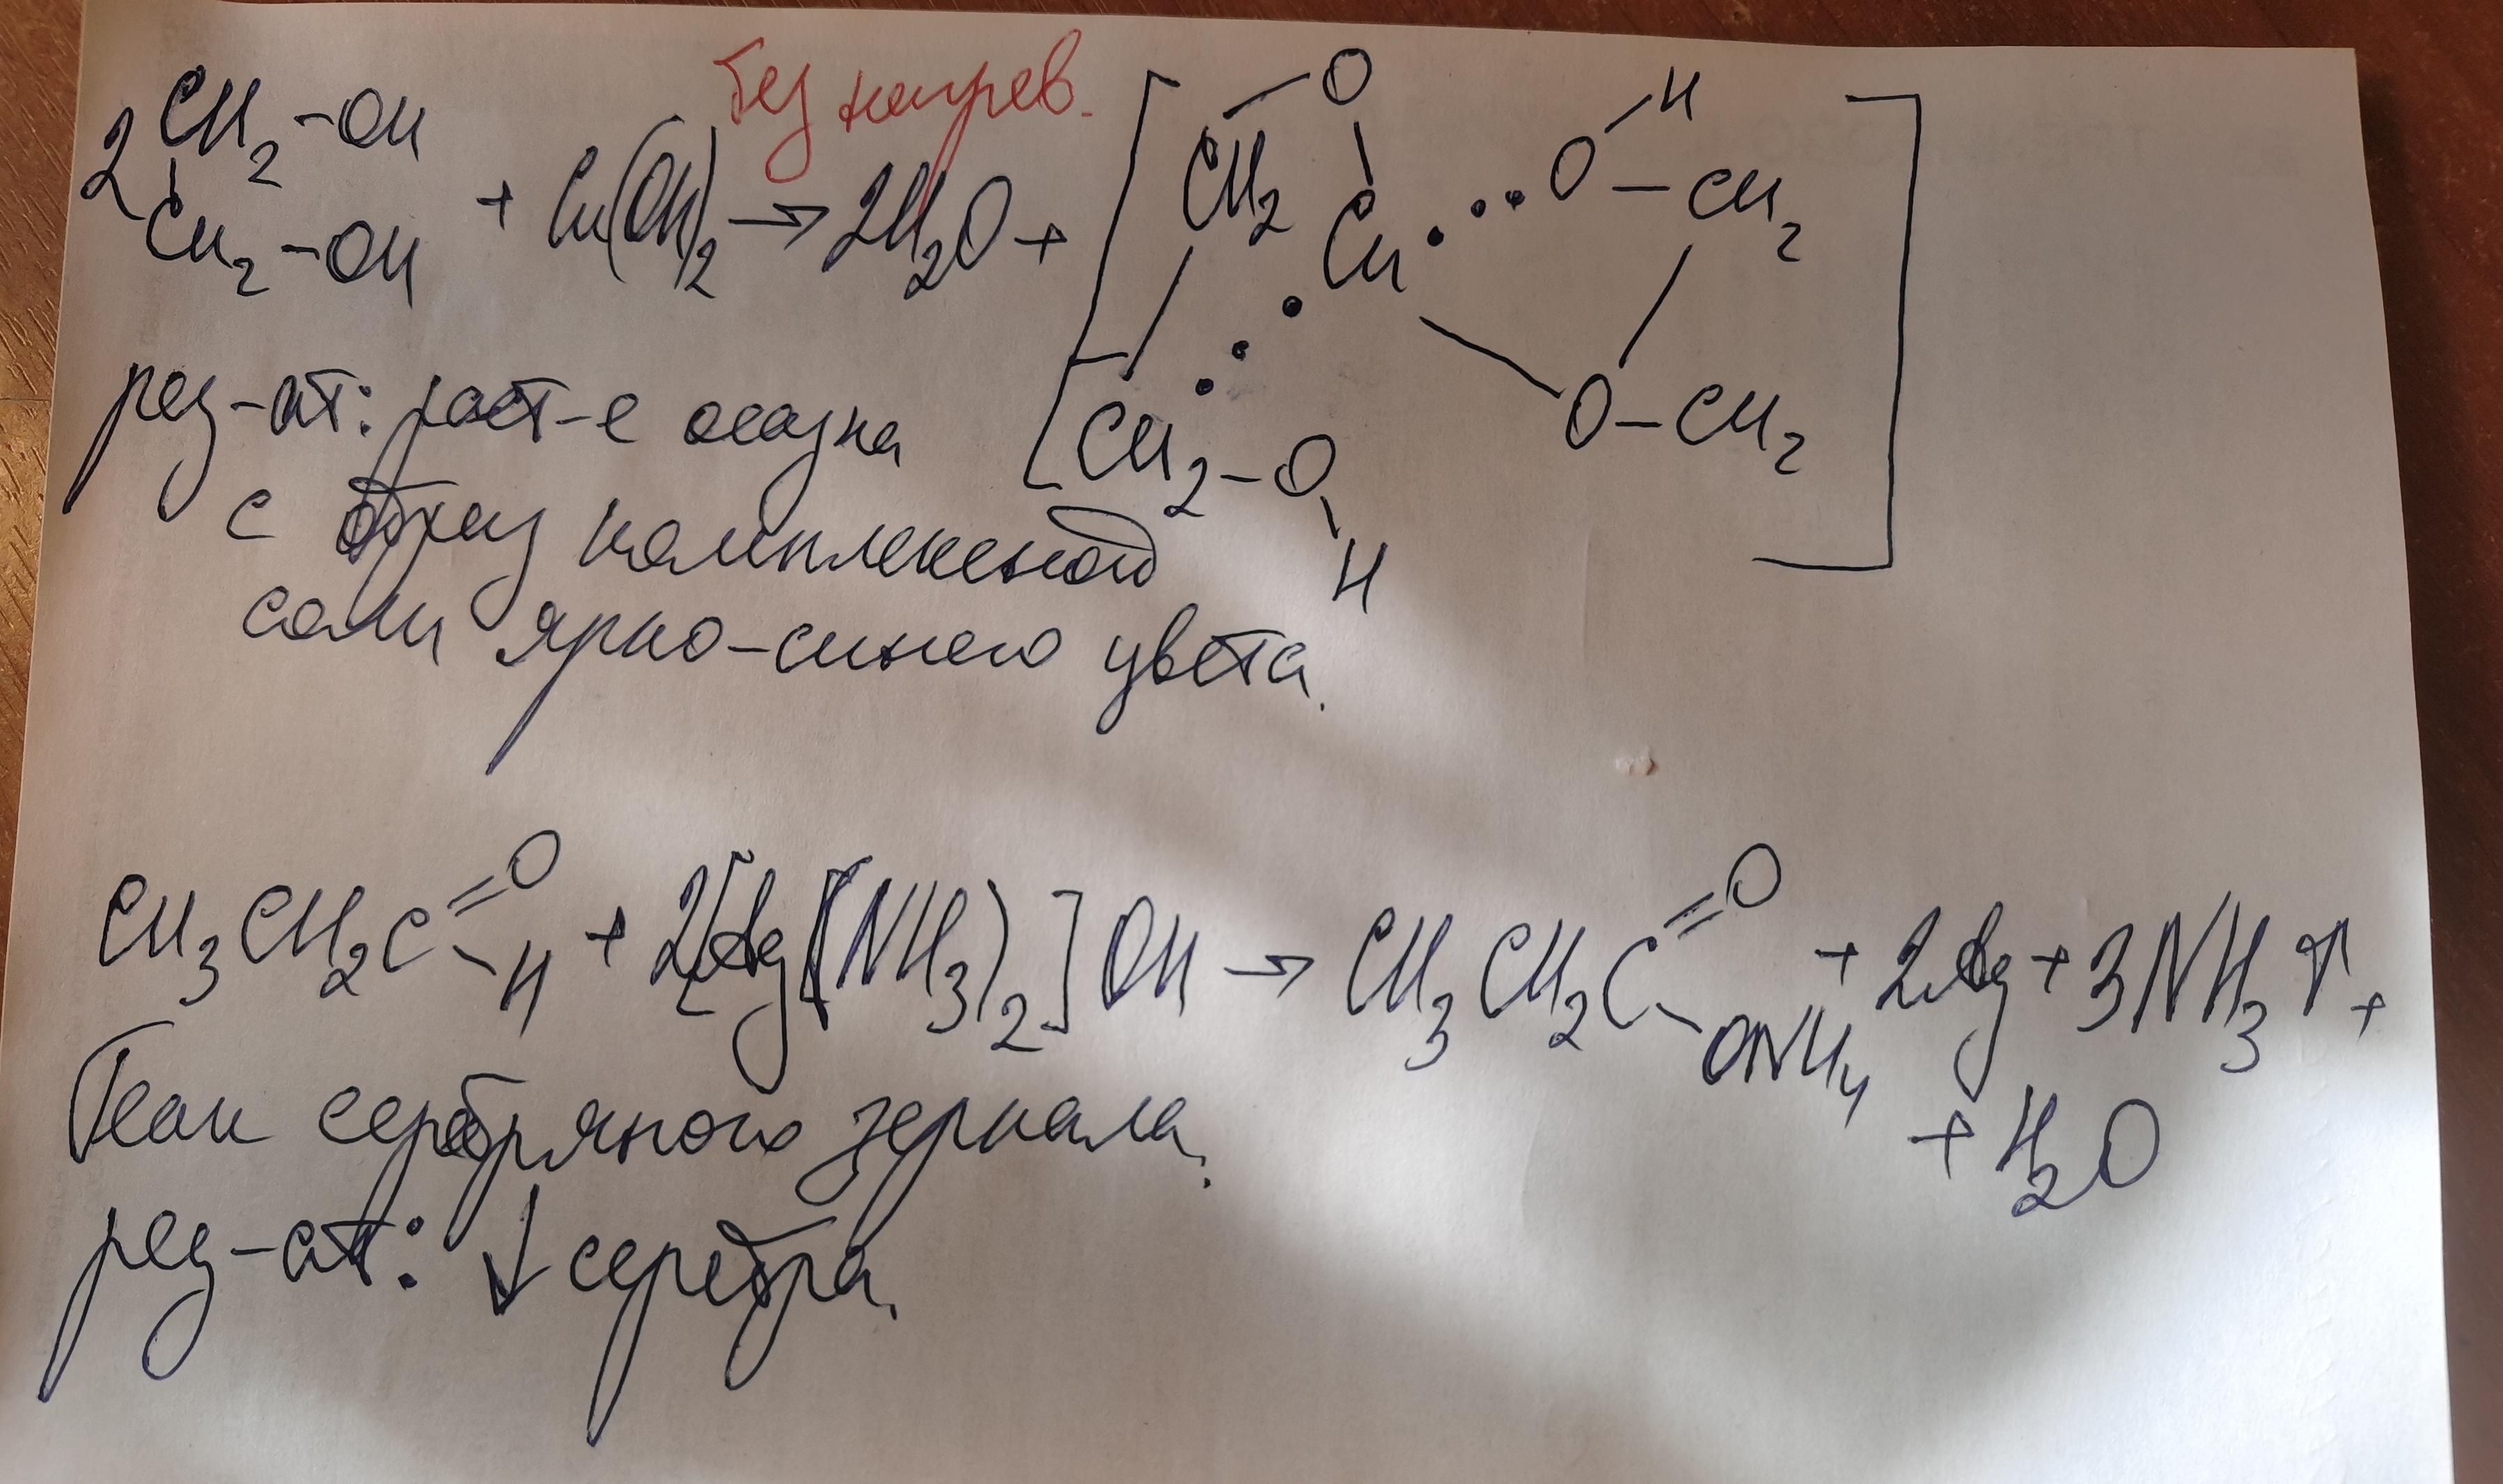 без нагрев.
2 CH₂-OH
CH₂-OH
+ Cu(OH)₂ → 2H₂O +
[ CH₂-O Cu O-H CH₂
CH₂-O-H O-CH₂ ]
рез-ат: раст-е осадка
с образ комплексной
соли ярко-синего цвета.
CH₃CH₂C=O-H + 2[Ag(NH₃)₂]OH → CH₃CH₂C=O-ONH₄ + 2Ag + 3NH₃↑ +
+ H₂O
Реак серебряного зеркала.
рез-ат: ↓ серебра.